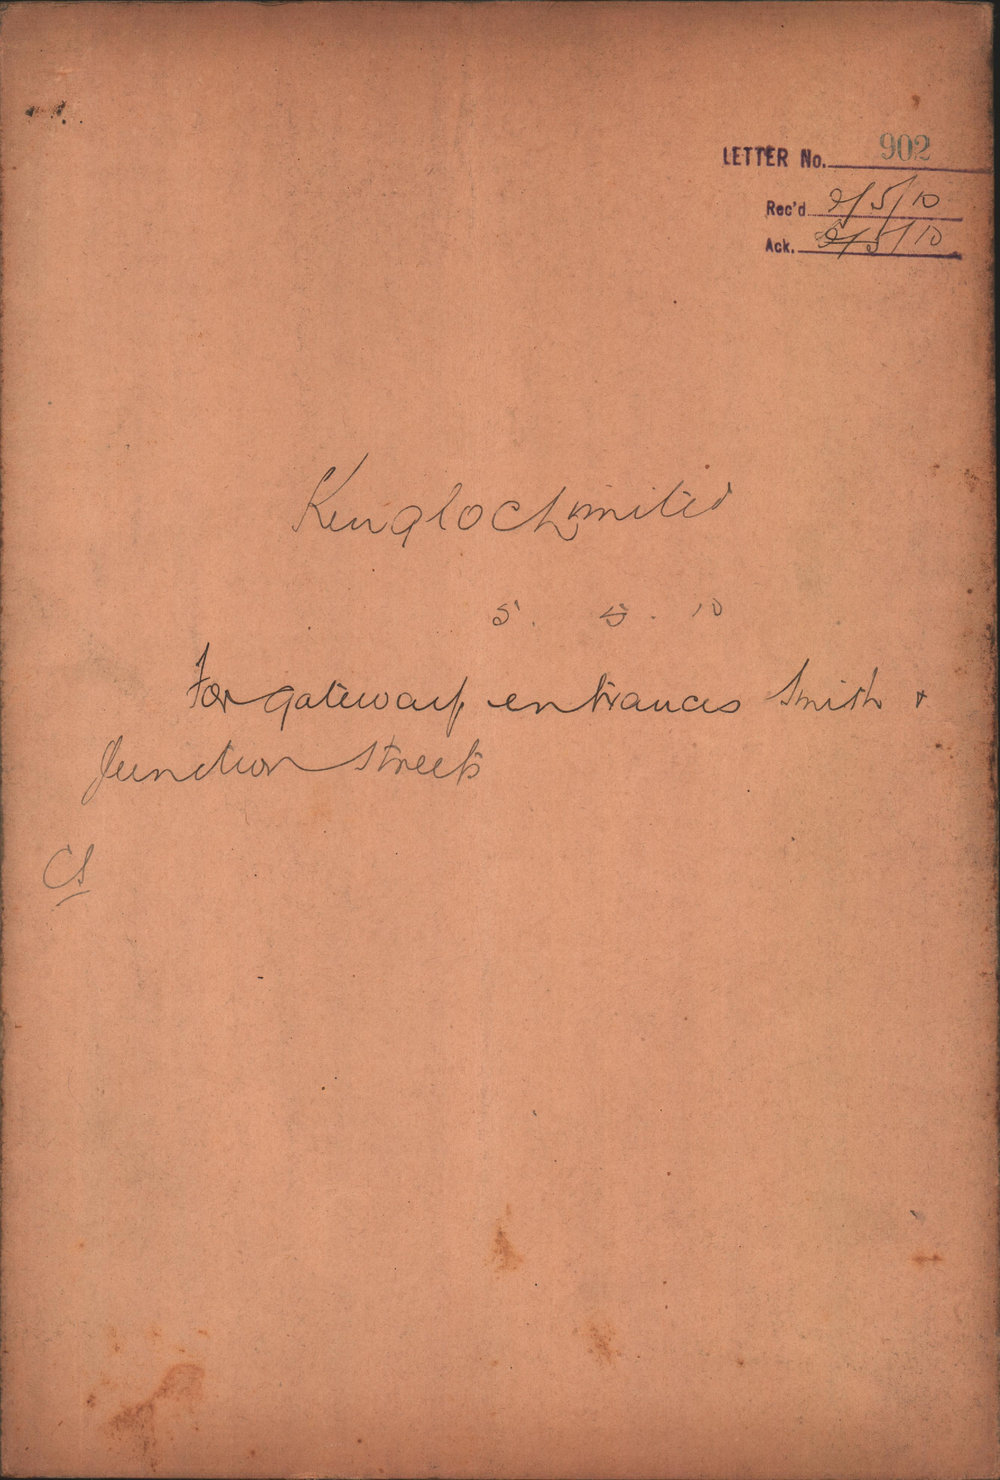 LETTER No. 902
Rec'd 9/5/10
Ack. 9/5/10
Kengloch Limited
5. 5. 10
For gateway entrances Smith +
Junction Streets
CS